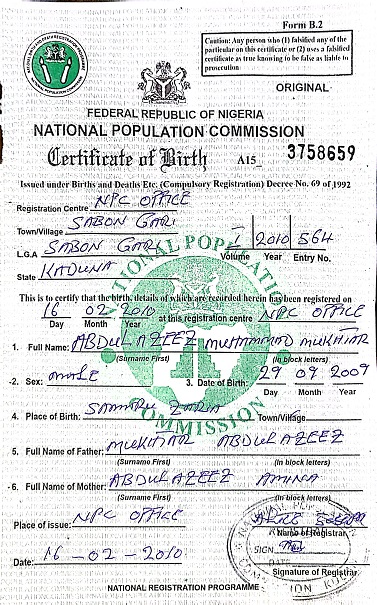 Form B.2
Caution: Any person who (1) falsified any of the
particular on this certificate or (2) uses a falsified
certificate as true knowing to be false as liable to
prosecution
ORIGINAL
FEDERAL REPUBLIC OF NIGERIA
NATIONAL POPULATION COMMISSION
Certificate of Birth A15 3758659
Issued under Births and Deaths Etc. (Compulsory Registration) Decree No. 69 of 1992
Registration Centre NPC OFFICE
Town/Village SABON GARI
L.G.A SABON GARI I 2010 564
Volume Year Entry No.
State KADUNA
This is to certify that the birth, details of which are recorded herein has been registered on
16 02 2010 at this registration centre NPC OFFICE
Day Month Year
1. Full Name: ABDULAZEEZ MUHAMMAD MUKHTAR
(Surname First) (In block letters)
2. Sex: MALE 3. Date of Birth: 29 09 2009
Day Month Year
4. Place of Birth: SAMARU ZARIA Town/Village
5. Full Name of Father: MUKHTAR ABDULAZEEZ
(Surname First) (In block letters)
6. Full Name of Mother: ABDULAZEEZ AMINA
(Surname First) (In block letters)
Place of issue: NPC OFFICE
Name of Registrar
SIGN
DATE
Date: 16-02-2010
Signature of Registrar
NATIONAL REGISTRATION PROGRAMME
NATIONAL POPULATION
COMMISSION